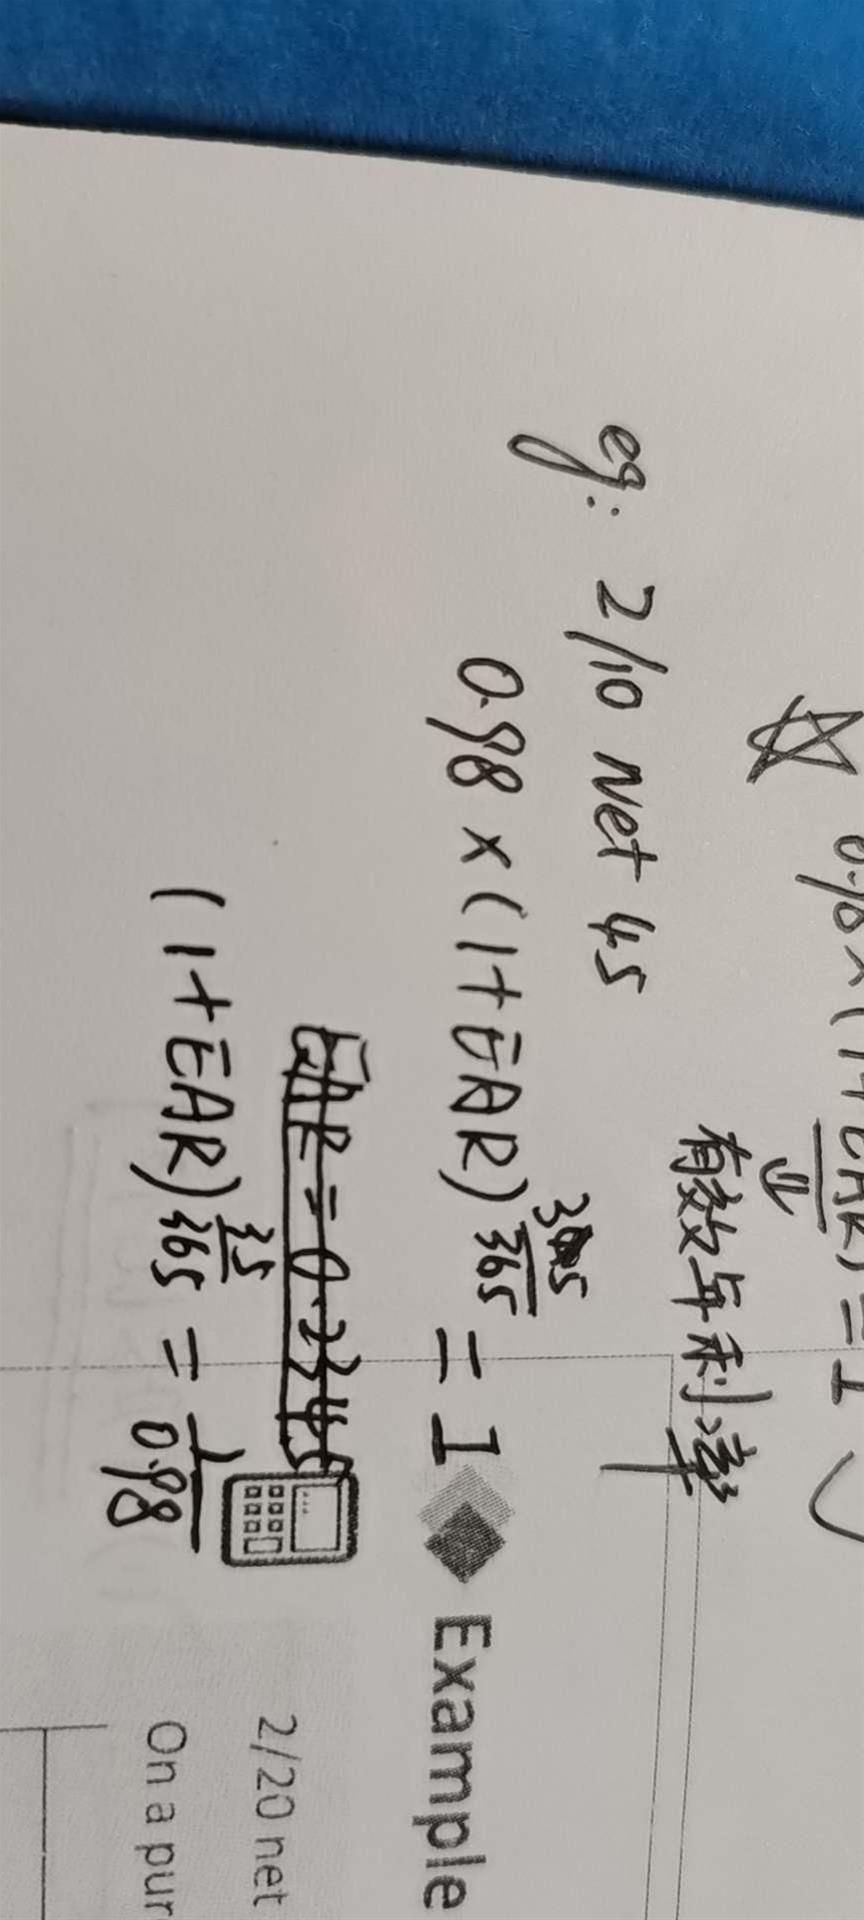 0.98×(1+EAR) = 1
有效年利率
eg: 2/10 net 45
0.98 × (1+EAR)^35/365 = 1
EAR = 0.2345
(1+EAR)^35/365 = 1/0.98
Example
2/20 net
On a pur